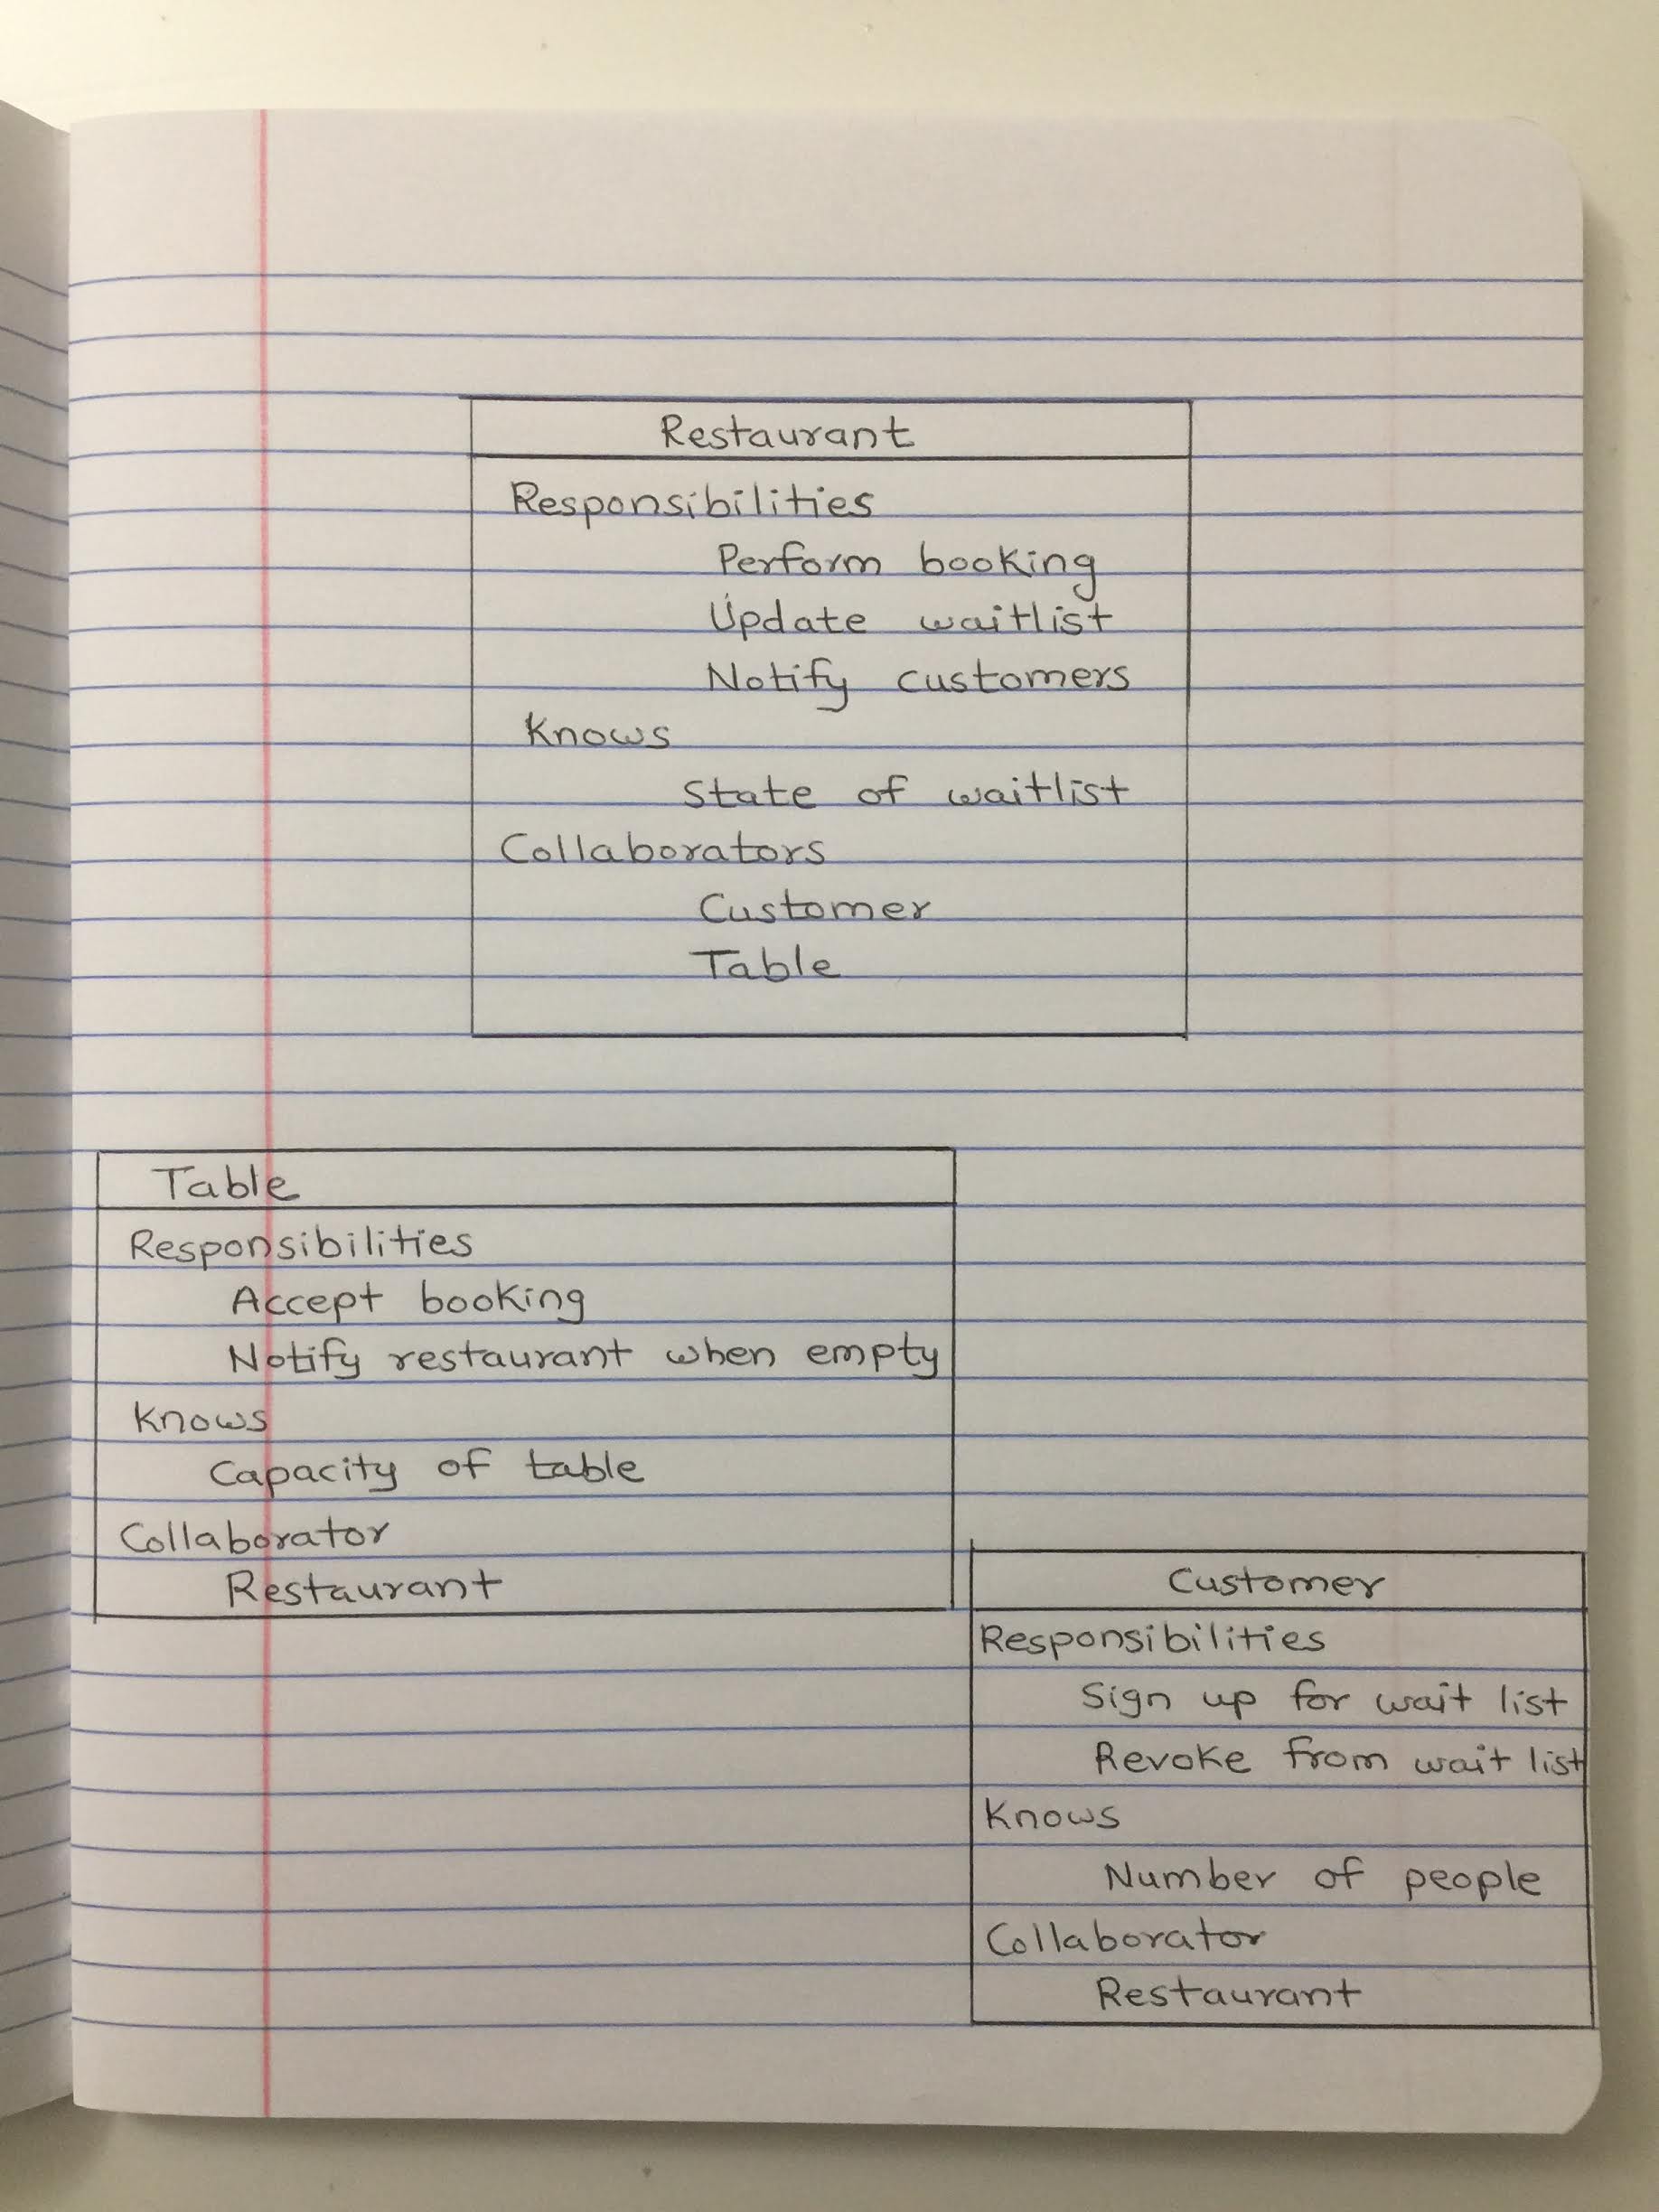 Restaurant
Responsibilities
Perform booking
Update waitlist
Notify customers
Knows
State of waitlist
Collaborators
Customer
Table
Table
Responsibilities
Accept booking
Notify restaurant when empty
Knows
Capacity of table
Collaborator
Restaurant
Customer
Responsibilities
Sign up for wait list
Revoke from wait list
Knows
Number of people
Collaborator
Restaurant